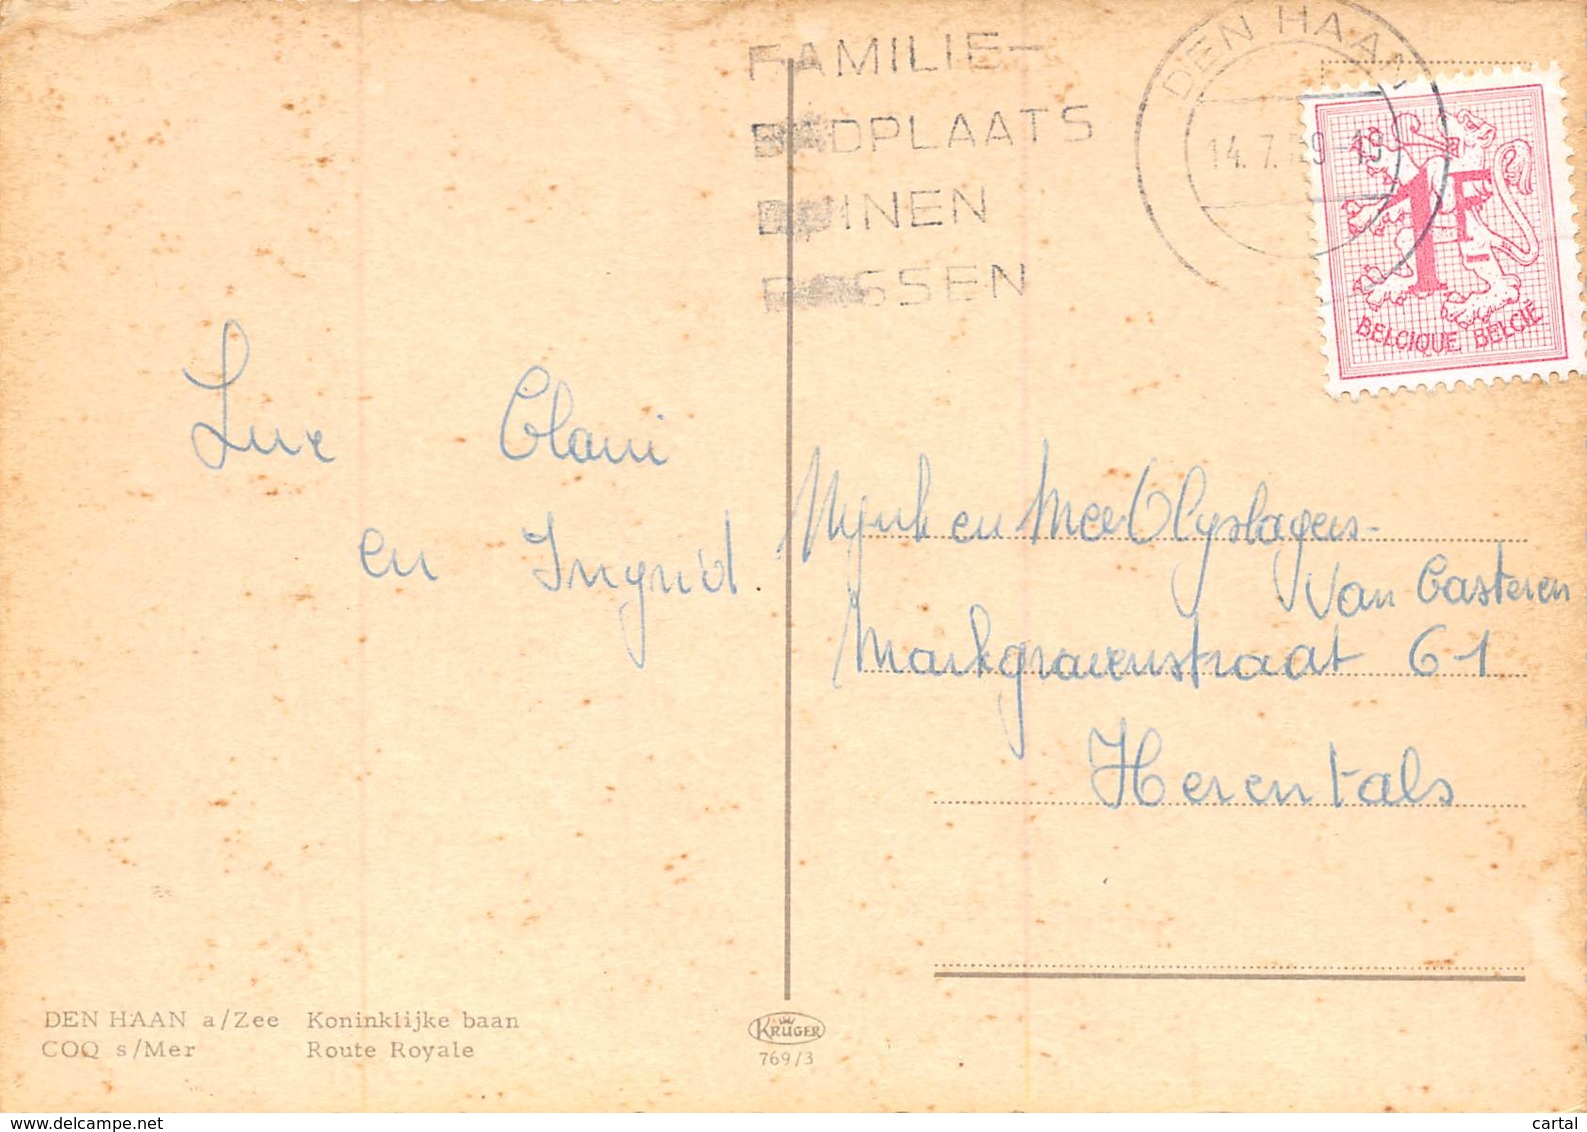 FAMILIE-
BADPLAATS
DUINEN
BOSSEN
DEN HAAN
14. 7. 9 - 19
1F
BELGIQUE BELGIË
Luc Clani
en Ingrid.
Mijnh en Mev Olyslagers-
Van Casteren
Markgravenstraat 61
Herentals
DEN HAAN a/Zee Koninklijke baan
COQ s/Mer Route Royale
KRÜGER
769/3
delcampe.net
cartal